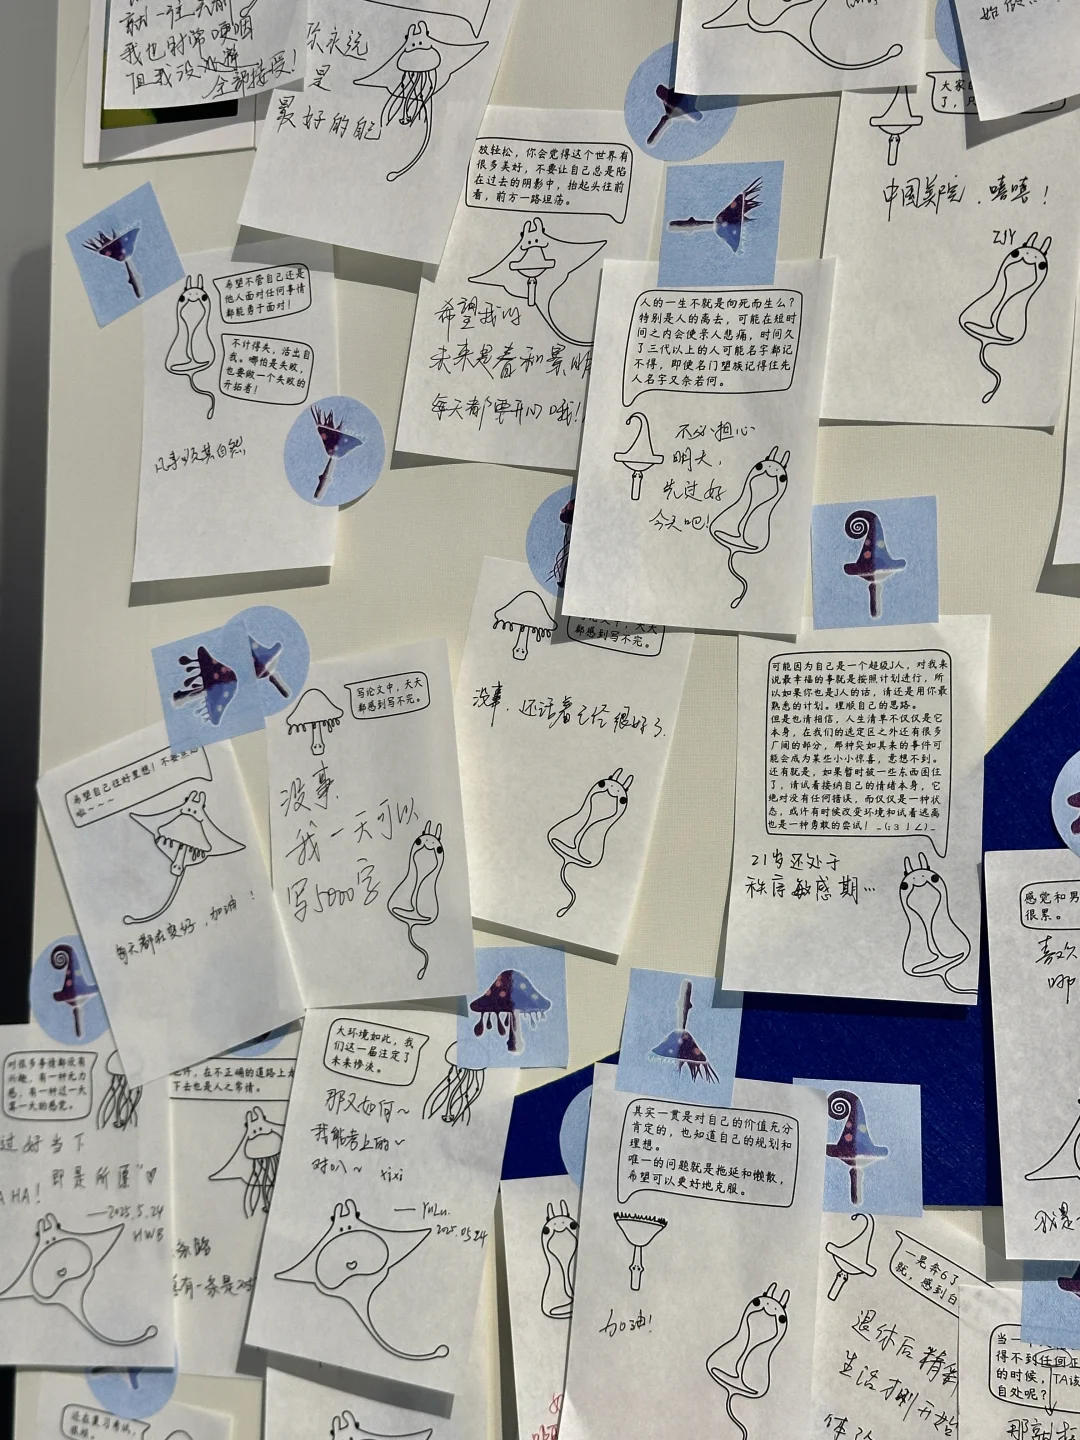 我也时常哽咽
但我没
全部接受！
你永远
是
最好的自己
放轻松，你会觉得这个世界有
很多美好，不要让自己总是陷
在过去的阴影中，抬起头往前
看，前方一路坦荡。
希望我的
未来是春和景明
每天都要开心哦！
大家
了，只
中国美院，嘻嘻！
ZJY
希望不管自己还是
他人面对任何事情
都能勇于面对！
不计得失，活出自
我。哪怕是失败，
也要做一个失败的
开拓者！
凡事顺其自然
人的一生不就是向死而生么？
特别是人的离去，可能在短时
间之内会使亲人悲痛，时间久
了三代以上的人可能名字都记
不得，即使名门望族记得住先
人名字又奈若何。
不必担心
明天，
先过好
今天吧！
都感到写不完。
没事，还活着已经很好了.
写论文中，天天
都感到写不完。
没事，
我一天可以
写5000字
可能因为自己是一个超级J人，对我来
说最幸福的事就是按照计划进行，所
以如果你也是J人的话，请还是用你最
熟悉的计划。理顺自己的思路。
但是也请相信，人生清单不仅仅是它
本身，在我们的选定区之外还有很多
广阔的部分，那种突如其来的事件可
能会成为某些小小惊喜，意想不到。
还有就是，如果暂时被一些东西困住
了，请试着接纳自己的情绪本身，它
绝对没有任何错误，而仅仅是一种状
态，或许有时候改变环境和试着逃离
也是一种勇敢的尝试！_(:3」∠)_
21岁还处于
秩序敏感期…
希望自己往好里想！不要
啦～～～
每天都在变好，加油！
感觉和男
很累。
喜欢
哪
对很多事情都没有
兴趣，有一种无力
感，有一种过一天
算一天的感觉。
过好当下
即是所愿"♡
AHA！
——2025.5.24
HWB
在不正确的道路上走
下去也是人之常情。
条路
有一条是对
大环境如此，我
们这一届注定了
未来惨淡。
那又如何~
我能考上的~
对叭~ xixi
——YuLu.
2025.05.24
其实一贯是对自己的价值充分
肯定的，也知道自己的规划和
理想。
唯一的问题就是拖延和懒散，
希望可以更好地克服。
加油！
一晃奔6了
就，感到自
退休后精彩
生活才刚开始
我是
当一
得不到任何正
的时候，TA该
自处呢？
那就
还在复习考试，